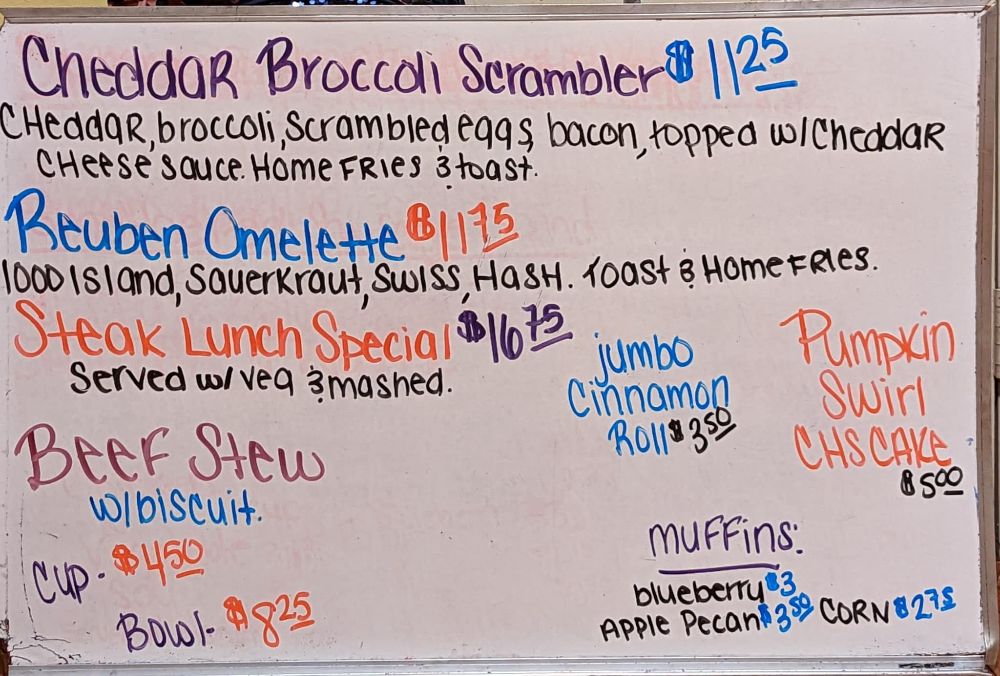 Cheddar Broccoli Scrambler $11.25
Cheddar, broccoli, scrambled eggs, bacon, topped w/cheddar
cheese sauce. Home fries & toast.
Reuben Omelette $11.75
1000 Island, Sauerkraut, Swiss, Hash. Toast & Home Fries.
Steak Lunch Special $16.75
Served w/ veg & mashed.
jumbo
Cinnamon
Roll $3.50
Pumpkin
Swirl
CHSCAKE
$5.00
Beef Stew
w/biscuit.
Cup - $4.50
Bowl - $8.25
Muffins:
blueberry $3
Apple Pecan $3.50 Corn $2.75